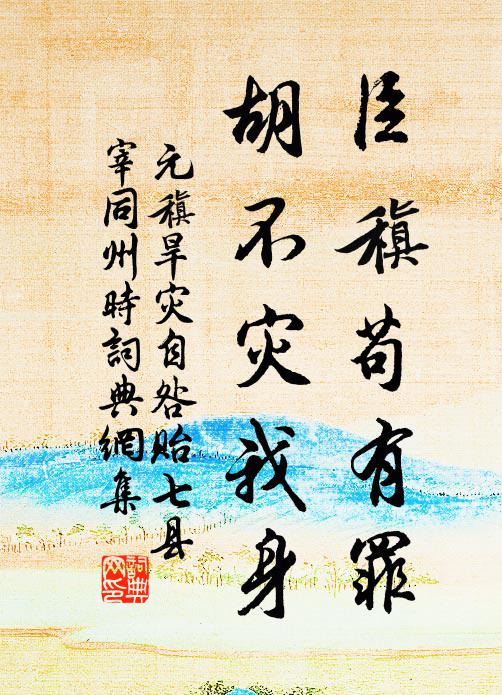 臣稹苟有罪
胡不灾我身
元稹旱灾自咎贻七县
宰同州時詞典網集
詞典
网印